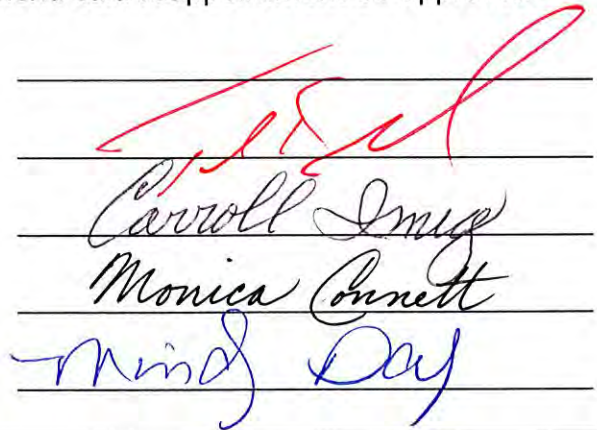 Carroll Imig
Monica Connett
Mindy Day